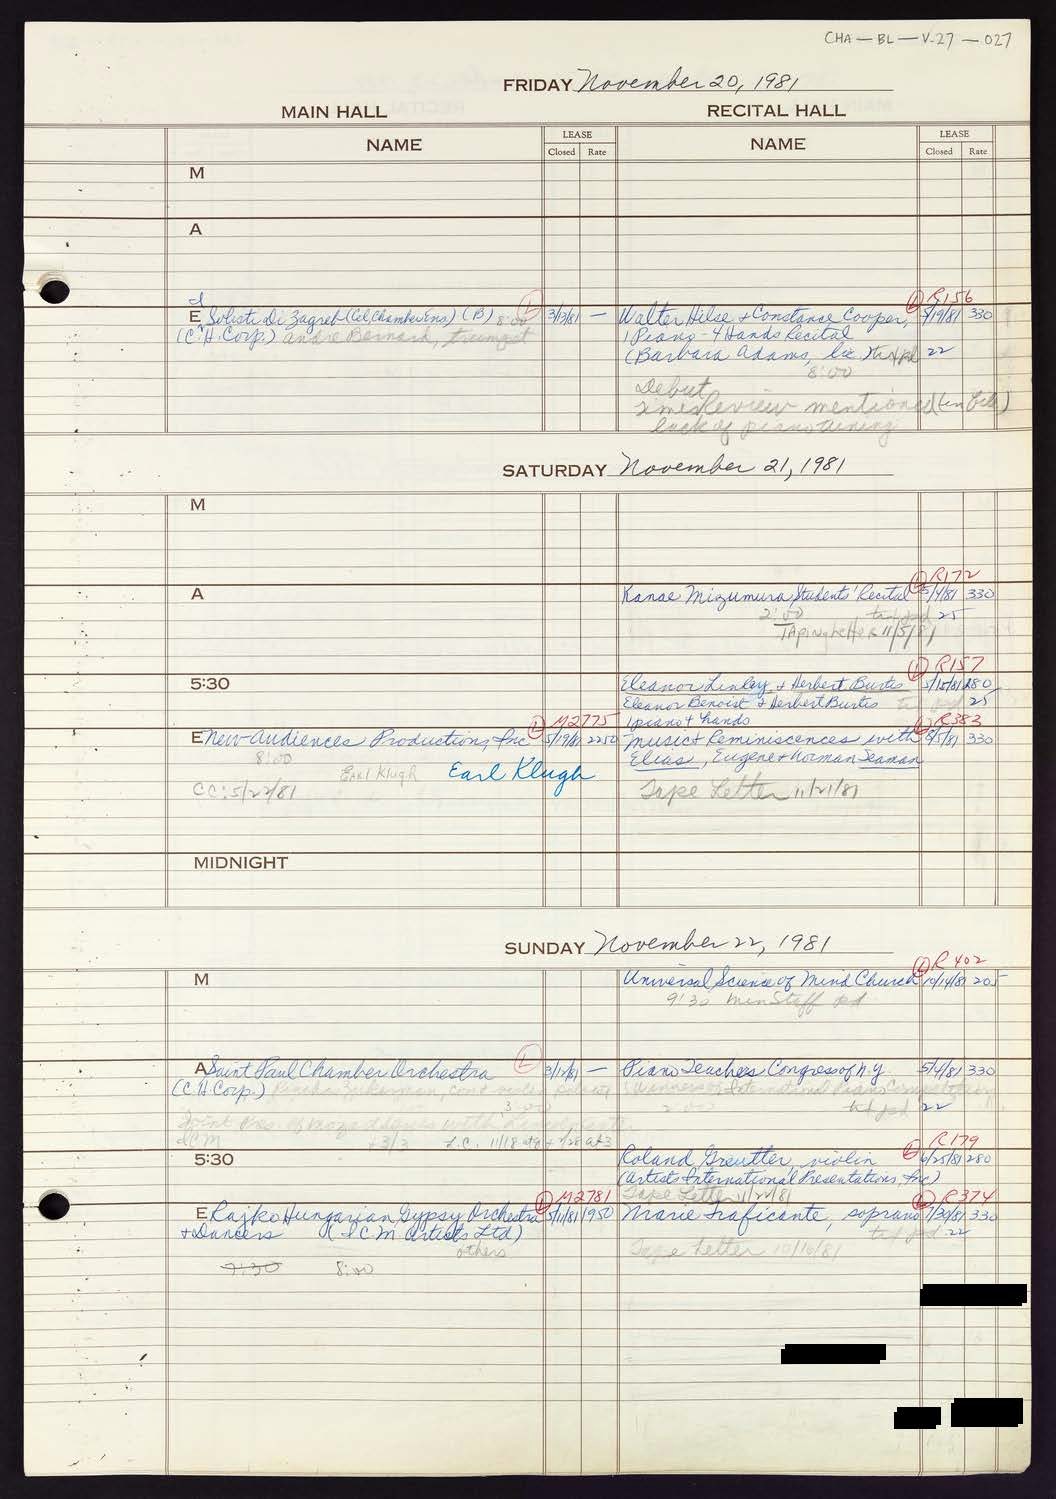 CHA-BL-V.27-027
FRIDAY November 20, 1981
MAIN HALL
RECITAL HALL
NAME
LEASE
Closed Rate
NAME
LEASE
Closed Rate
M
A
E I Solisti Di Zagreb (Cel. Chamber Ens.) (B) 8:00 L 3/13/81 —
(C.H. Corp.) Andre Bernard, trumpet
L R156
Walter Hilse & Constance Cooper, 330
1 Piano - 4 Hands Recital
(Barbara Adams, 22
8:00
Debut
Times Review mentioned
lack of piano tuning
SATURDAY November 21, 1981
M
L R172
A
Kanae Mizumura Students' Recital 5/4/81 330
2:00 25
Taping Letter 11/5/81
5:30
L R157
Eleanor Linley & Herbert Burtis 5/15/81 280
Eleanor Benoist & Herbert Burtis 25
1 piano 4 hands
L M2775
E New Audiences Productions, Inc 5/19/81 2250
8:00
Earl Klugh Earl Klugh
CC: 5/22/81
L R383
Music & Reminiscences with 8/5/81 330
Elias, Eugene & Norman Seaman
Tape Letter 11/21/81
MIDNIGHT
SUNDAY November 22, 1981
L R402
M
Universal Science of Mind Church 10/14/81 205
9:30 Min Staff pd
A Saint Paul Chamber Orchestra L 3/12/81 —
(C.H. Corp.) Pinchas Zukerman, cond
3:00
Piano Teachers Congress of N.Y. 5/4/81 330
Winners of International Piano Competition
2:00 22
5:30
L R179
Roland Greutter, violin 6/25/81 280
(Artists International Presentations, Inc)
Tape Letter 11/22/81
L M2781
E Rajko Hungarian Gypsy Orchestra 5/11/81 1950
& Dancers (ICM Artists Ltd)
others
7:30 8:00
L R374
Marie Traficante, soprano 7/30/81 330
22
Tape Letter 10/10/81